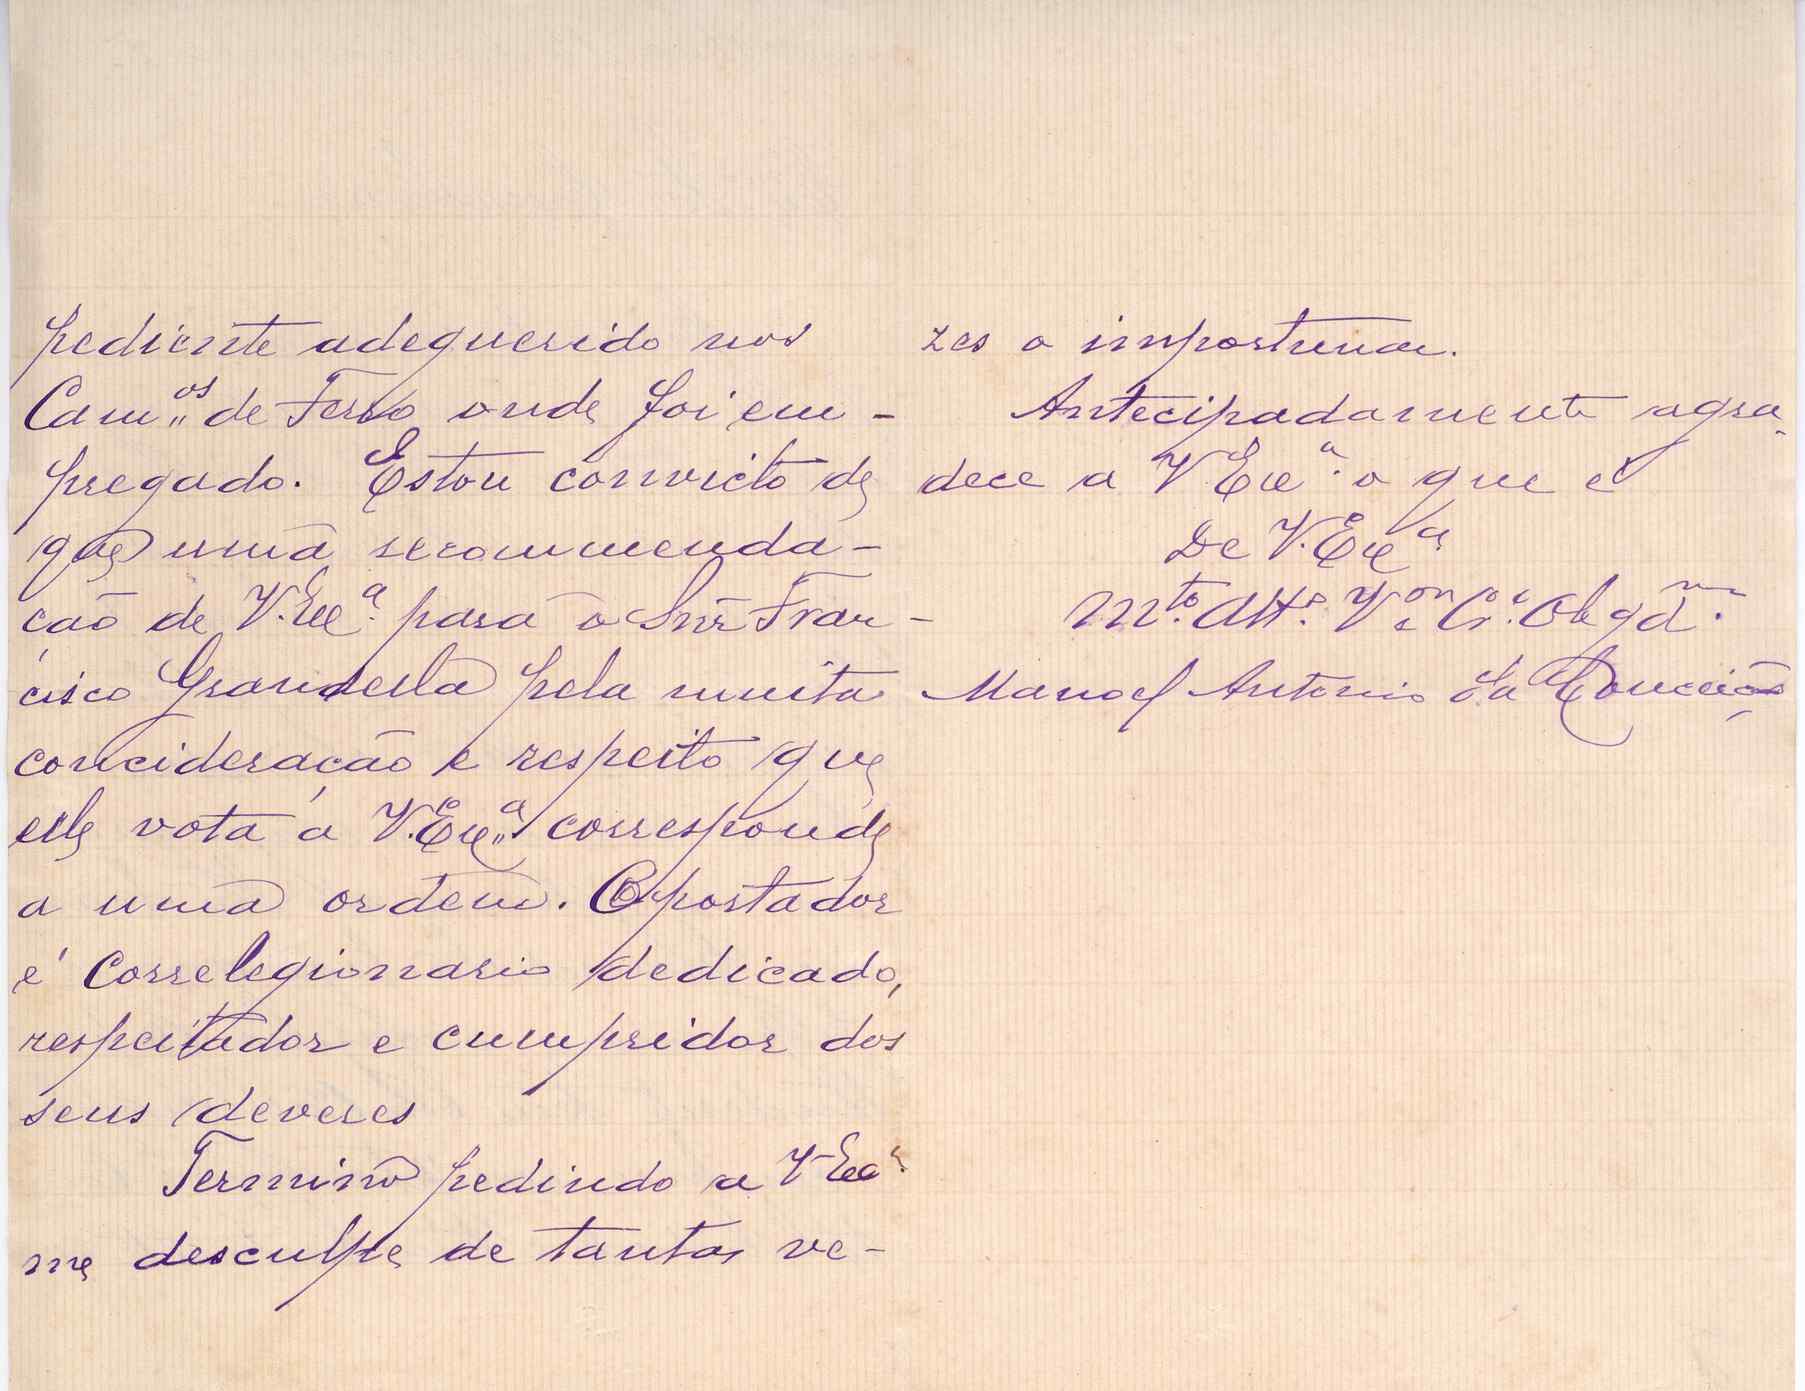 pediente adequerido nos
Cam.os de Ferro onde foi em-
pregado. Estou convicto de
que uma recommenda-
ção de V. Exª. para o Snr Fran-
cisco Grandella pela muita
concideração e respeito que
elle vota a V. Exª. corresponde
a uma ordem. O portador
é Correlegionario dedicado,
respeitador e cumpridor dos
seus deveres
Termino pedindo a V Exª.
me desculpe de tantas ve-
zes o importunar.
Antecipadamente agra-
dece a V Exª. o que é
De V. Exª
Mto. Attº. Vor e Cr.º Obgdm.º
Manoel Antonio da Conceição